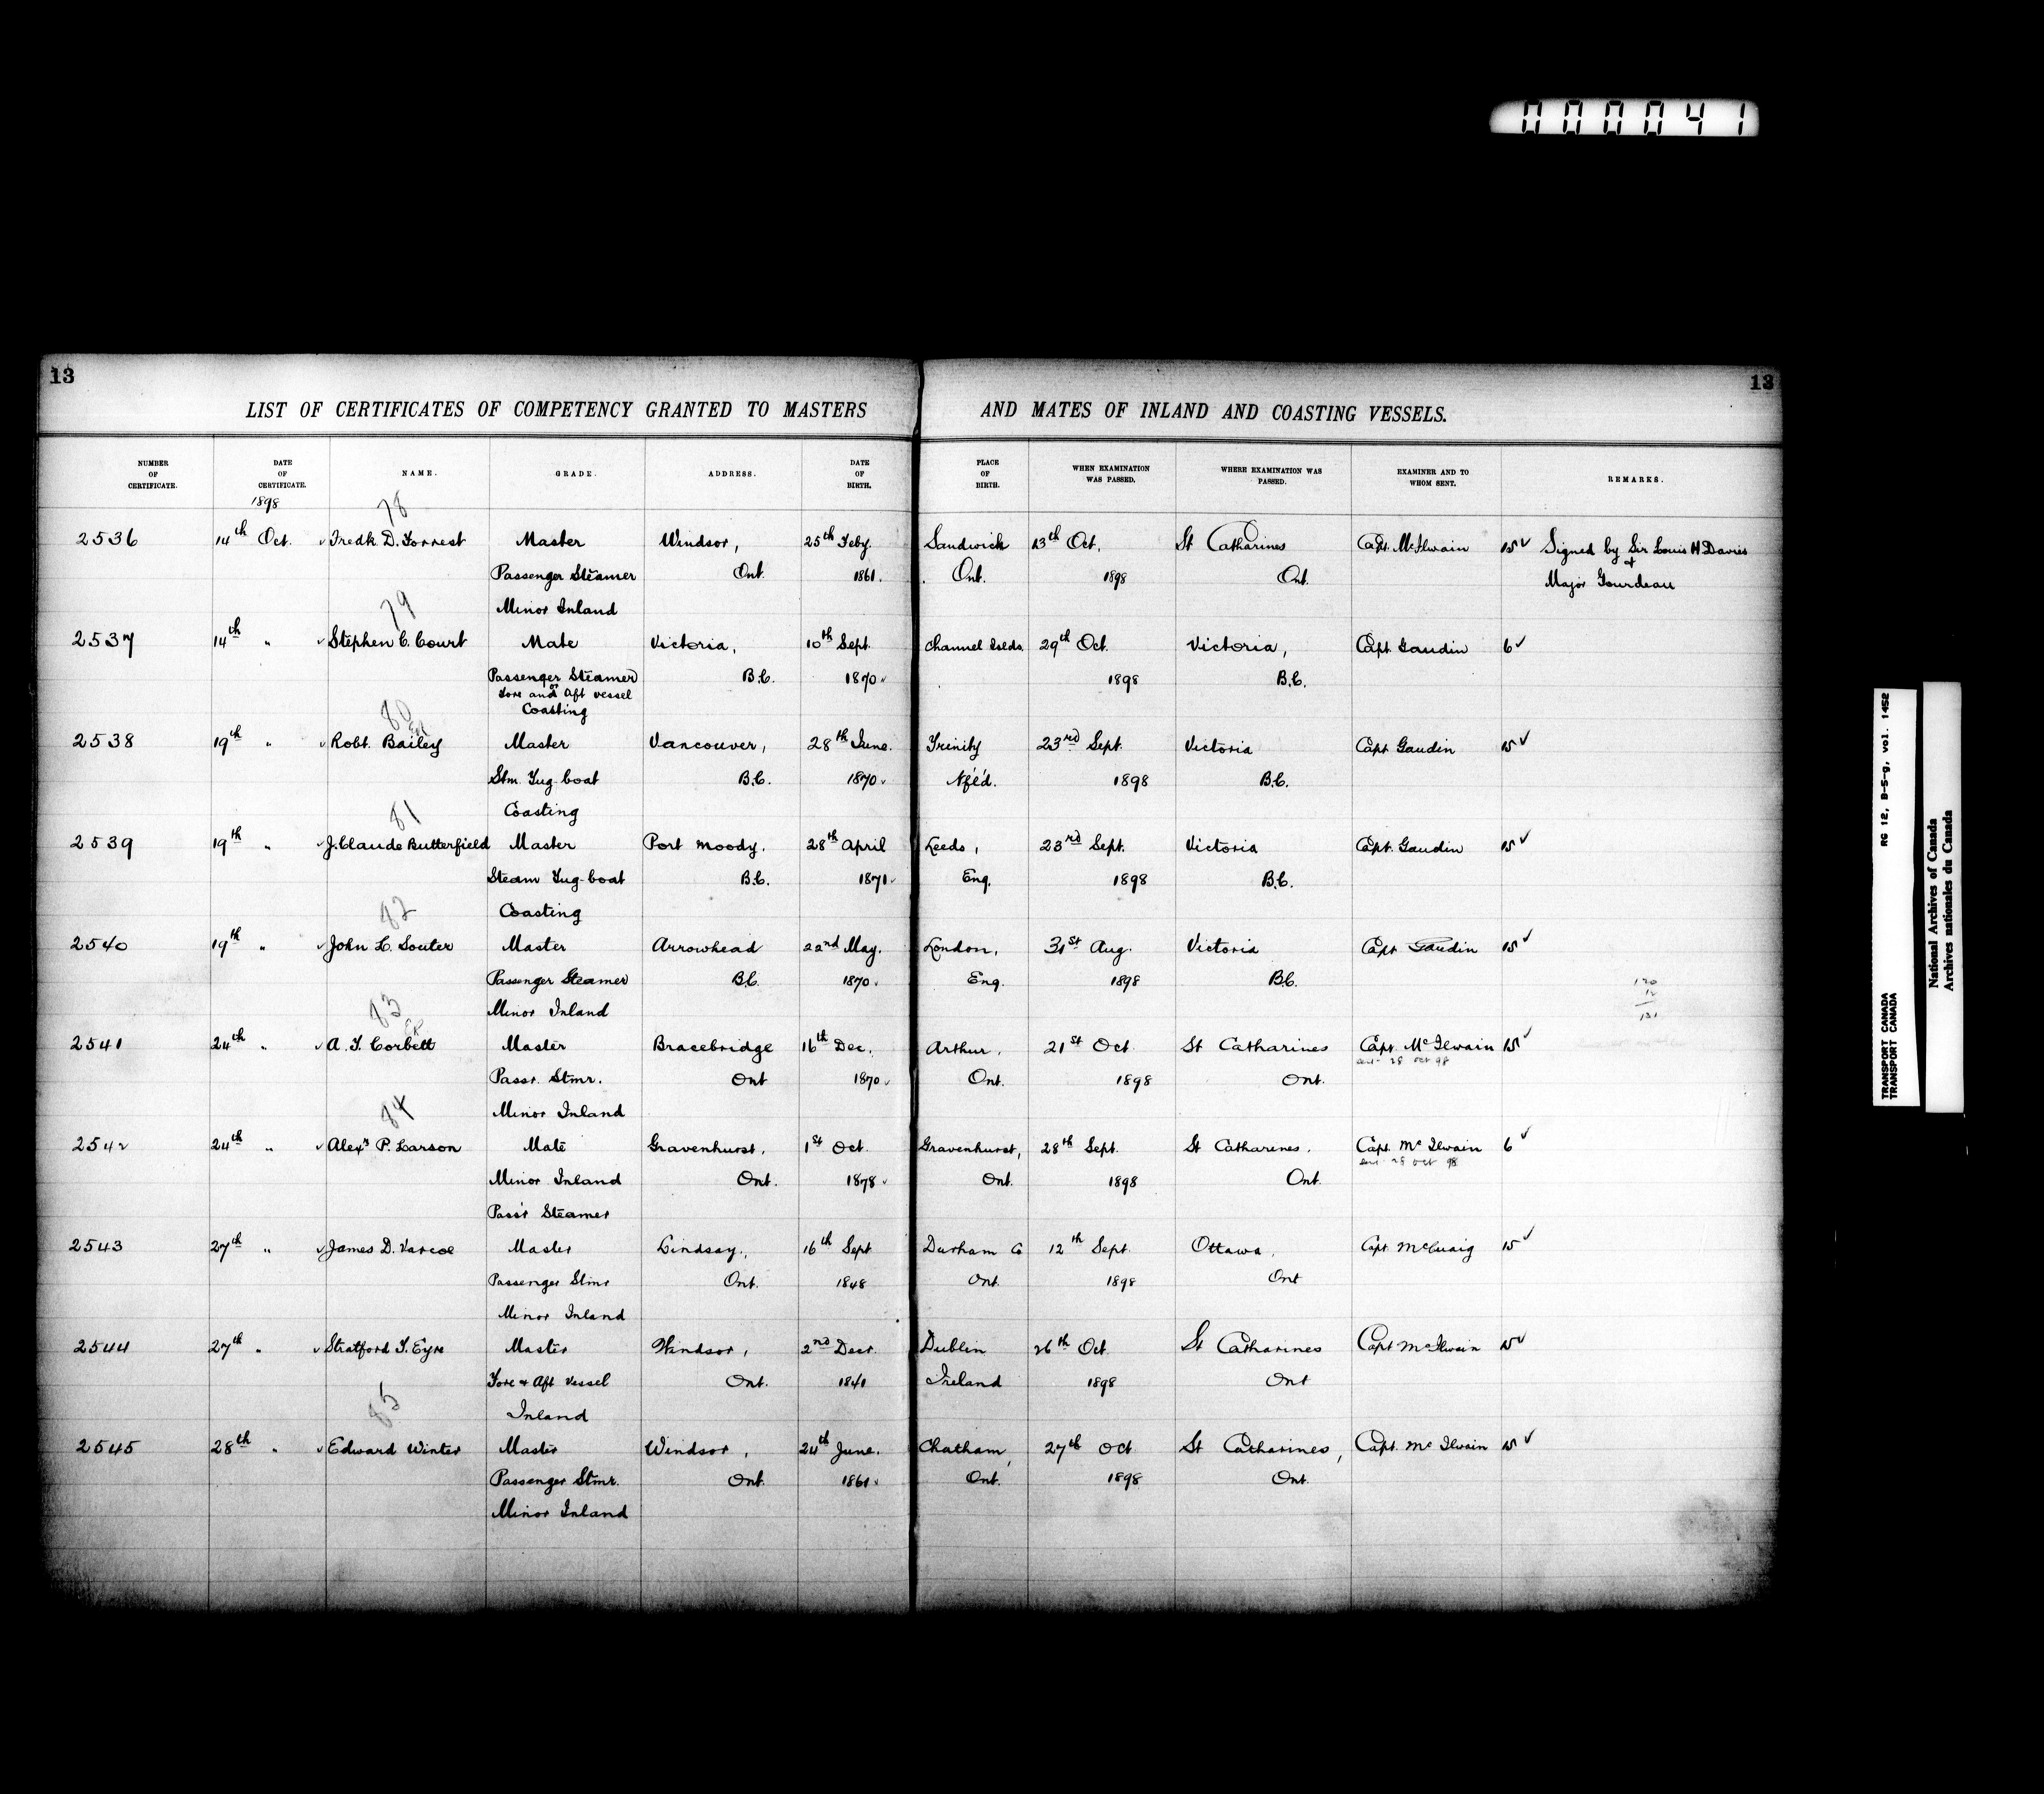 000041
13
13
LIST OF CERTIFICATES OF COMPETENCY GRANTED TO MASTERS AND MATES OF INLAND AND COASTING VESSELS.
NUMBER OF CERTIFICATE. DATE OF CERTIFICATE. NAME. GRADE. ADDRESS. DATE OF BIRTH. PLACE OF BIRTH. WHEN EXAMINATION WAS PASSED. WHERE EXAMINATION WAS PASSED. EXAMINER AND TO WHOM SENT. REMARKS.
1898
78
2536 14th Oct. Fredk D. Forrest Master Windsor, 25th Feby. Sandwick 13th Oct. St Catharines Capt. McIlwain 15 ✓ Signed by Sir Louis H Davies
Passenger Steamer Ont. 1861. Ont. 1898 Ont. & Major Gourdeau
79 Minor Inland
2537 14th " Stephen C. Court Mate Victoria, 10th Sept. Channel Islds. 29th Oct. Victoria, Capt. Gaudin 6 ✓
Passenger Steamer B.C. 1870 1898 B.C.
Fore and Aft vessel
80 Coasting
2538 19th " Robt. Bailey Master Vancouver, 28th June. Trinity 23rd Sept. Victoria Capt. Gaudin 15 ✓
Stm. Tug-boat B.C. 1870 Nf'l'd. 1898 B.C.
81 Coasting
2539 19th " J. Claude Butterfield Master Port Moody. 28th April Leeds, 23rd Sept. Victoria Capt. Gaudin 15 ✓
Steam Tug-boat B.C. 1871 Eng. 1898 B.C.
82 Coasting
2540 19th " John L. Souter Master Arrowhead 22nd May. London, 31st Aug. Victoria Capt Gaudin 15 ✓
Passenger Steamer B.C. 1870 Eng. 1898 B.C.
83 Minor Inland
2541 24th " A. T. Corbett Master Bracebridge 16th Dec. Arthur, 21st Oct St Catharines Capt. McIlwain 15 ✓
sent 28 Oct 98
Passr. Stmr. Ont 1870 Ont. 1898 Ont.
84 Minor Inland
2542 24th " Alexr P. Larson Mate Gravenhurst, 1st Oct. Gravenhurst, 28th Sept. St Catharines, Capt. McIlwain 6 ✓
sent 28 Oct 98
Minor Inland Ont. 1878 Ont. 1898 Ont.
Pass'r Steamer
2543 27th " James D. Varcoe Master Lindsay, 16th Sept Durham Co 12th Sept. Ottawa, Capt. McCuaig 15 ✓
Passenger Stmr Ont. 1848 Ont. 1898 Ont
Minor Inland
2544 27th " Stratford T. Eyre Master Windsor, 2nd Decr. Dublin 26th Oct. St Catharines Capt McIlwain 15 ✓
Fore & Aft Vessel Ont. 1841 Ireland 1898 Ont
85 Inland
2545 28th " Edward Winter Master Windsor, 24th June. Chatham, 27th Oct St Catharines, Capt. McIlwain 15 ✓
Passenger Stmr. Ont. 1861 Ont. 1898 Ont.
Minor Inland
TRANSPORT CANADA RG 12, B-5-g, vol. 1452
TRANSPORT CANADA
National Archives of Canada
Archives nationales du Canada